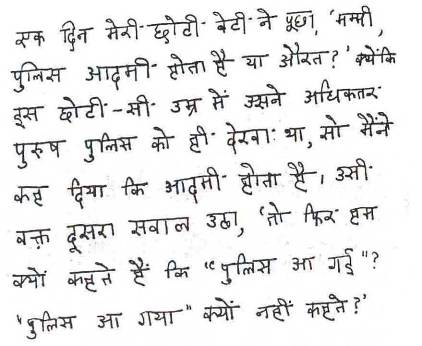 एक दिन मेरी छोटी बेटी ने पूछा, 'मम्मी,
पुलिस आदमी होता है या औरत?' क्योंकि
इस छोटी-सी उम्र में उसने अधिकतर
पुरुष पुलिस को ही देखा था, सो मैंने
कह दिया कि आदमी होता है। उसी
वक़्त दूसरा सवाल उठा, 'तो फिर हम
क्यों कहते हैं कि "पुलिस आ गई"?
"पुलिस आ गया" क्यों नहीं कहते?'